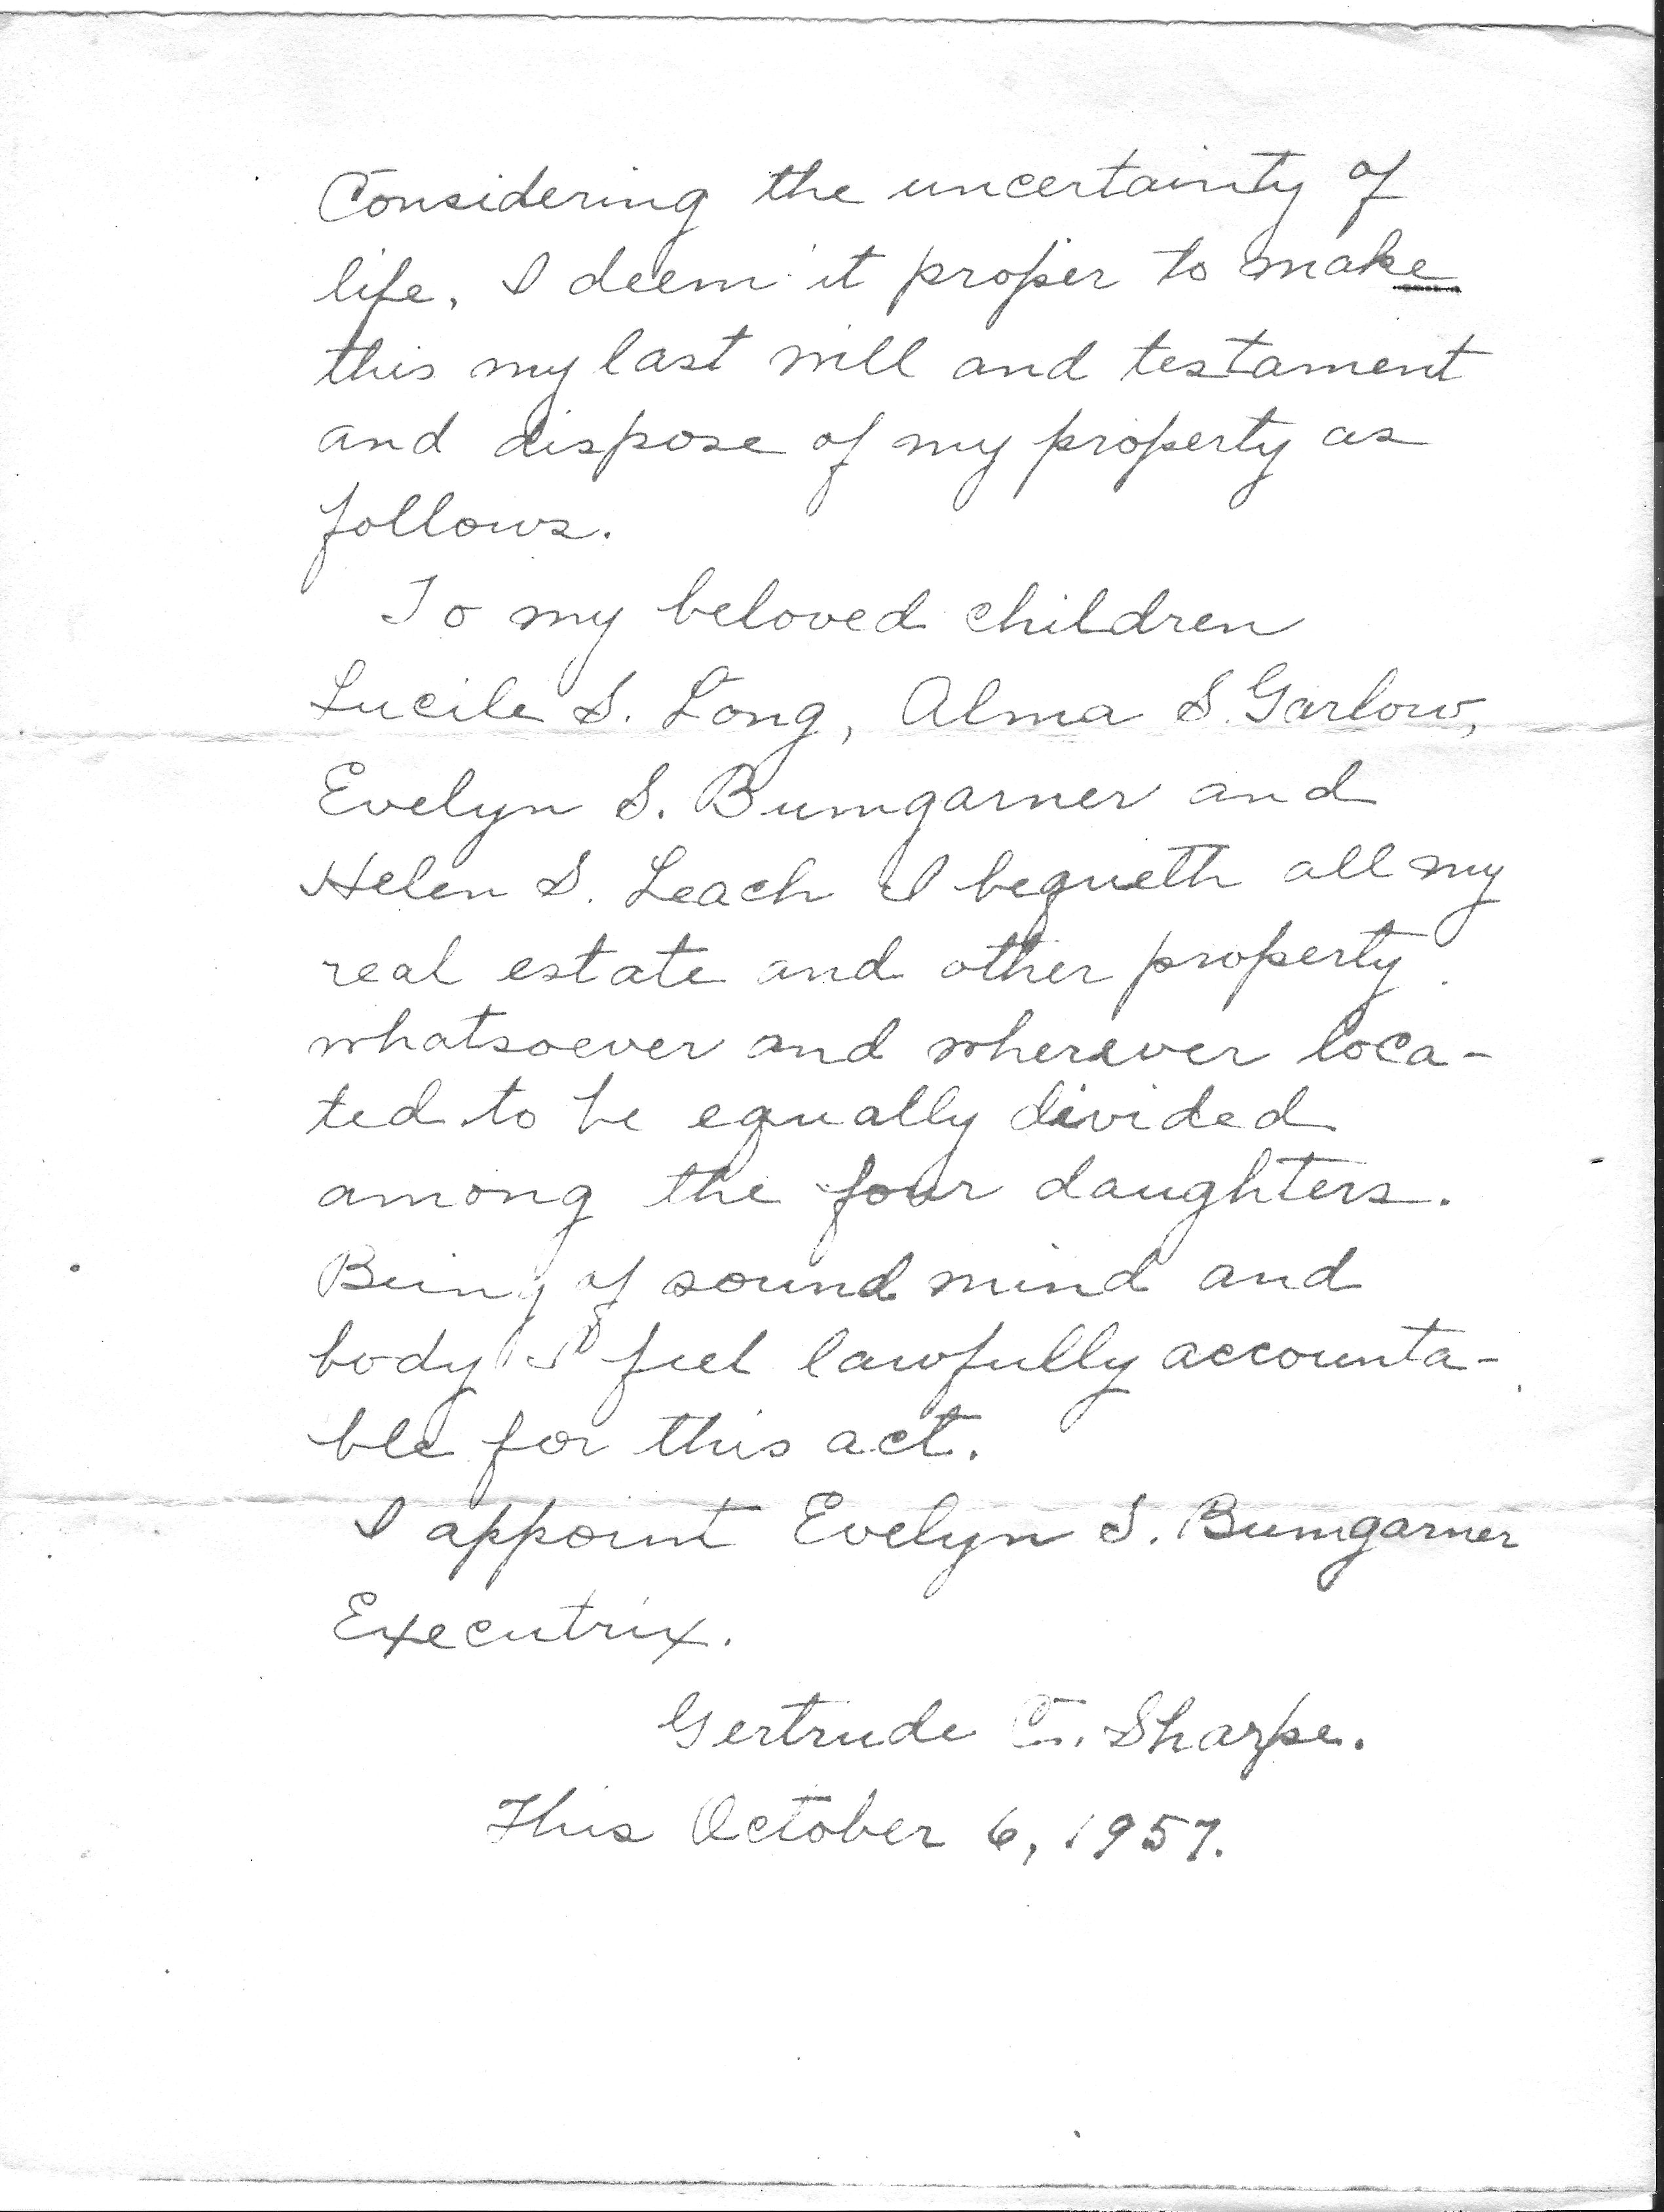 Considering the uncertainty of
life, I deem it proper to make
this my last will and testament
and dispose of my property as
follows.
To my beloved children
Lucile S. Long, Alma S. Garlow,
Evelyn S. Bumgarner and
Helen S. Leach I bequeth all my
real estate and other property
whatsoever and wherever loca-
ted to be equally divided
among the four daughters.
Being of sound mind and
body I feel lawfully accounta-
ble for this act.
I appoint Evelyn S. Bumgarner
Executrix.
Gertrude C. Sharpe.
This October 6, 1957.